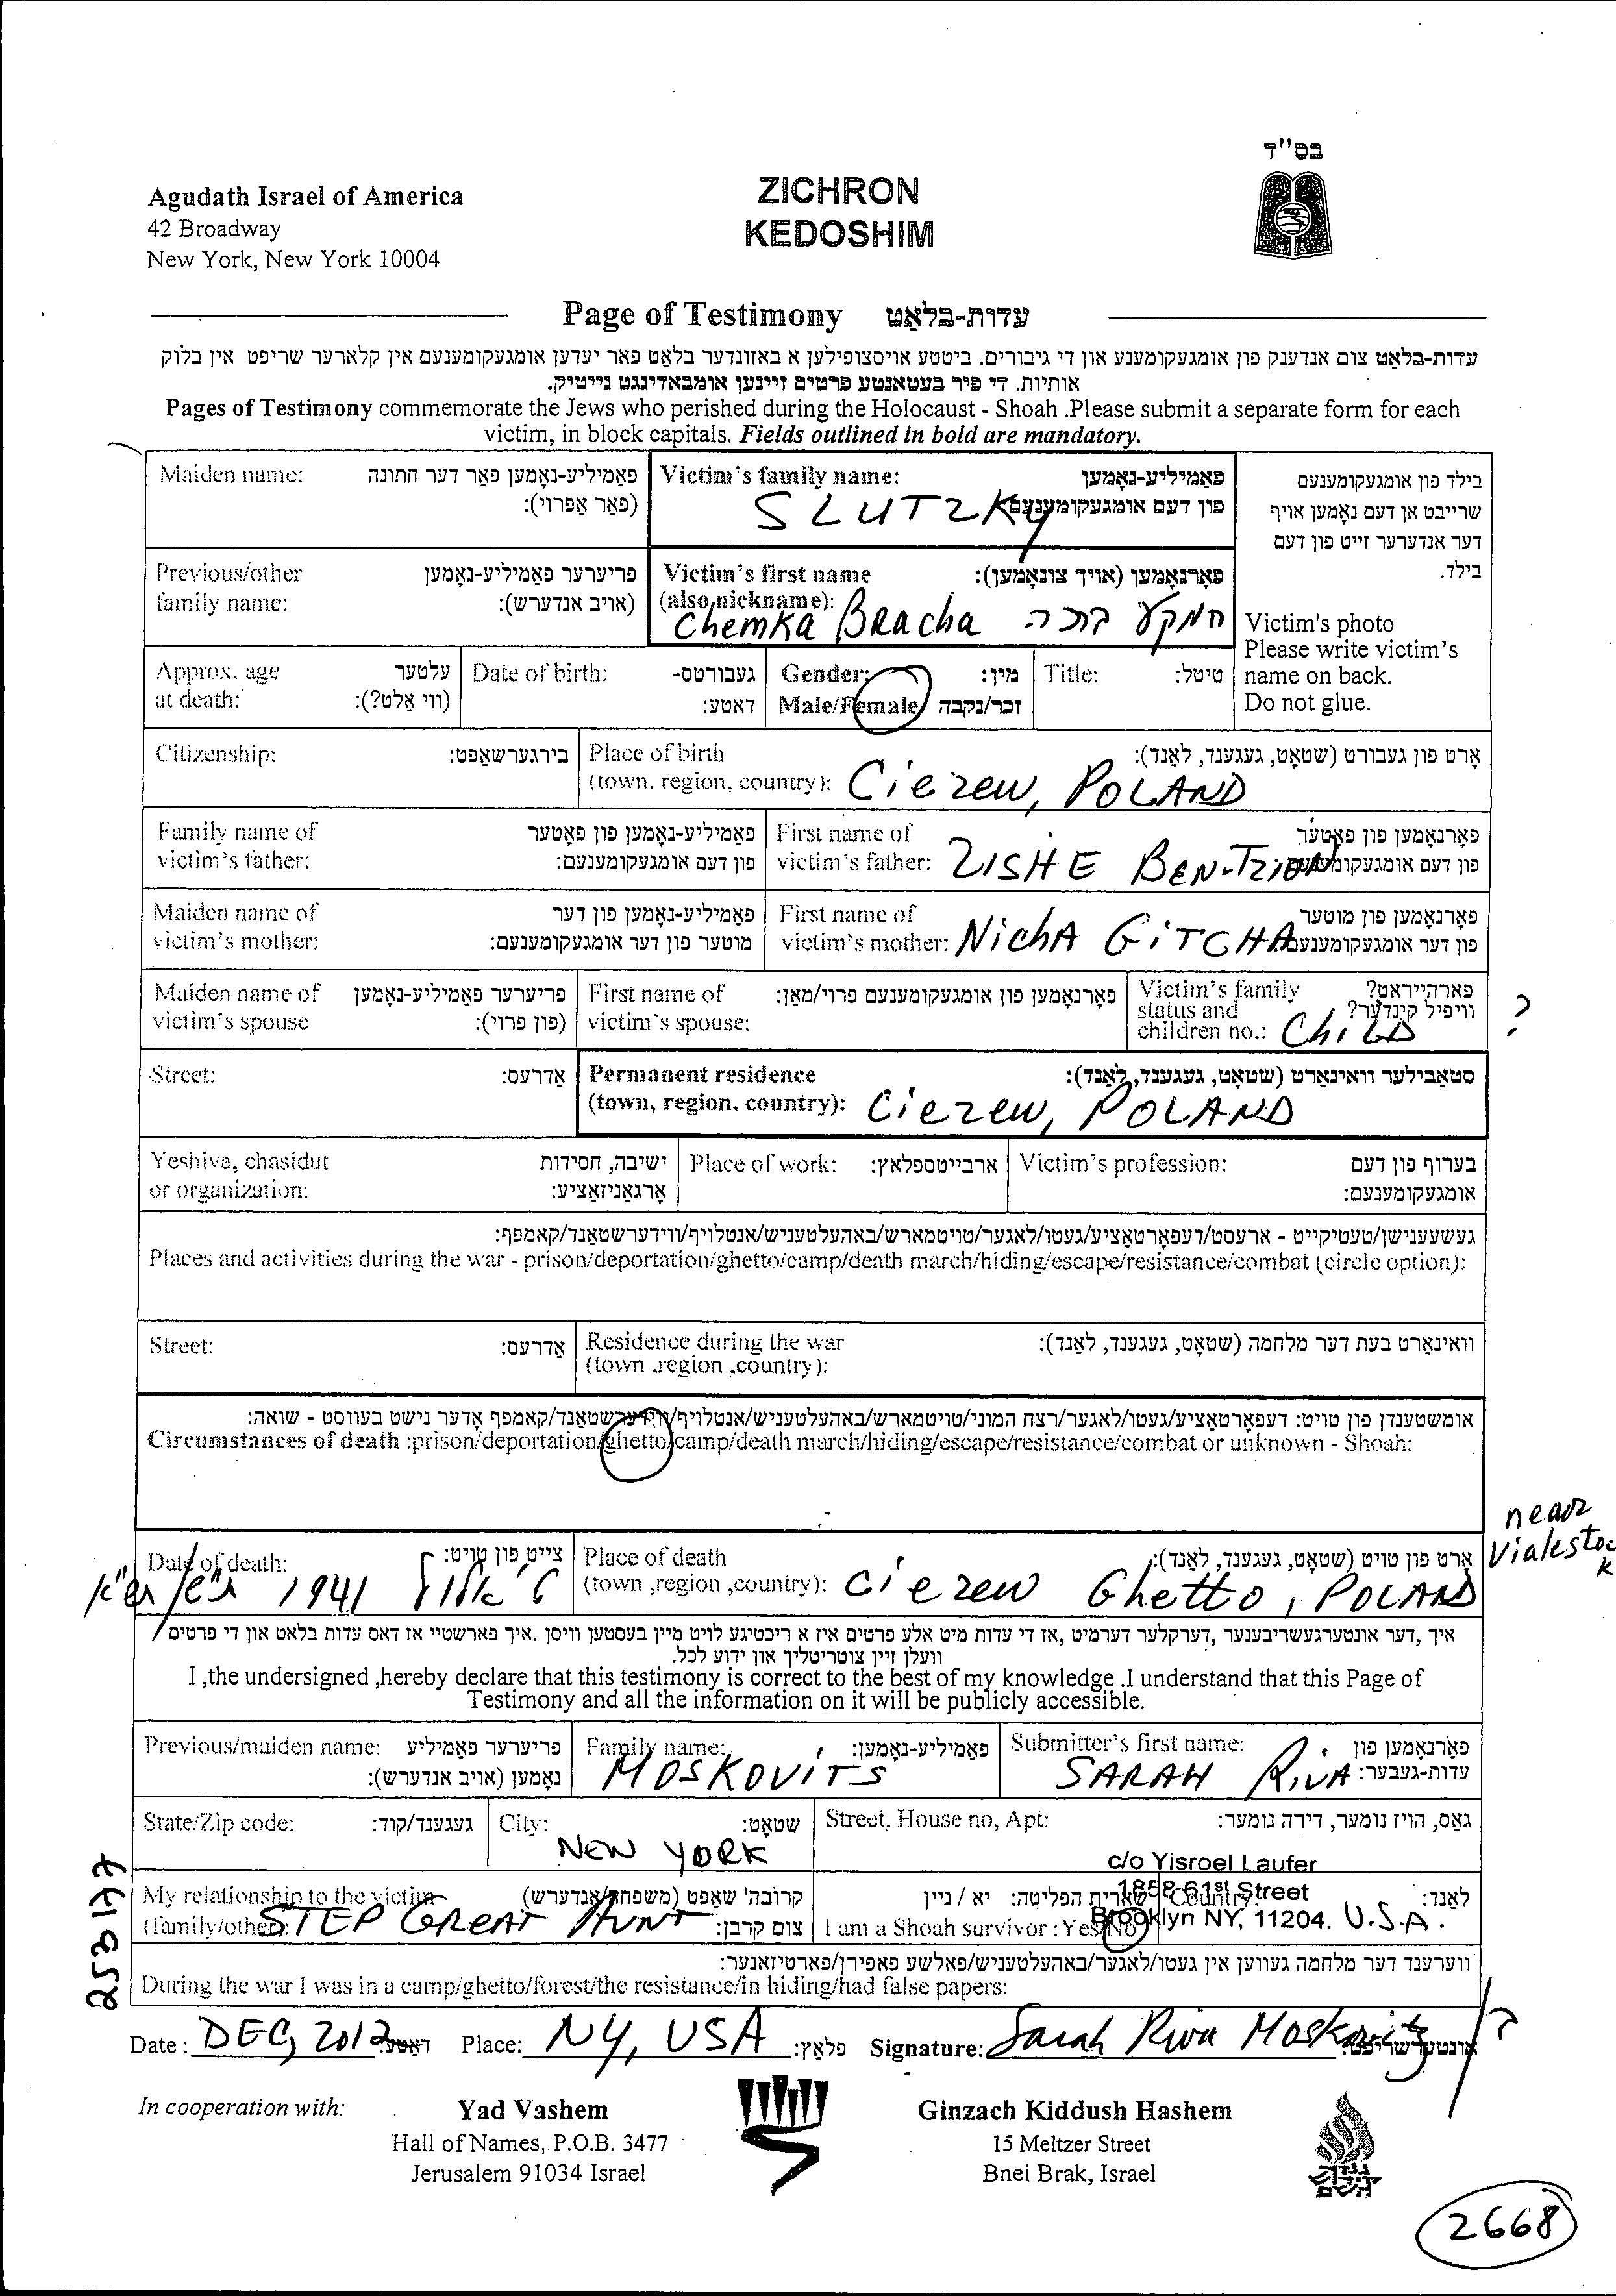 בס"ד
Agudath Israel of America
42 Broadway
New York, New York 10004
ZICHRON
KEDOSHIM
Page of Testimony עדות-בלאַט
עדות-בלאַט צום אנדענק פון אומגעקומענע און די גיבורים. ביטטע אויסצופילען א באזונדער בלאַט פאר יעדען אומגעקומענעם אין קלארער שריפט אין בלוק
אותיות. די פיר בעטאנטע פרטים זיינען אומבאדינגט נייטיק.
Pages of Testimony commemorate the Jews who perished during the Holocaust - Shoah .Please submit a separate form for each
victim, in block capitals. Fields outlined in bold are mandatory.
Maiden name: פאַמיליע-נאָמען פאַר דער חתונה
(פאַר אַפרוי):
Victim's family name: פאַמיליע-נאָמען
פון דעם אומגעקומענעם
SLUTZKY
בילד פון אומגעקומענעם
שרייבט אן דעם נאָמען אויף
דער אנדערער זייט פון דעם
בילד.
Victim's photo
Please write victim's
name on back.
Do not glue.
Previous/other פריערער פאַמיליע-נאָמען
family name: (אויב אנדערש):
Victim's first name פאָרנאָמען (אויך צונאָמען):
(also,nickname):
Chemka Bracha חמקע ברכה
Approx. age עלטער
at death: (ווי אַלט?):
Date of birth: געבורטס-
דאטע:
Gender: מין:
Male/Female זכר/נקבה
Title: טיטל:
Citizenship: בירגערשאַפט:
Place of birth אָרט פון געבורט (שטאָט, געגענד, לאַנד):
(town. region, country): Ciezew, POLAND
Family name of פאַמיליע-נאָמען פון פאָטער
victim's father: פון דעם אומגעקומענעם:
First name of פאָרנאָמען פון פאָטער
victim's father: ZISHE BEN-TZION פון דעם אומגעקומענעם
Maiden name of פאַמיליע-נאָמען פון דער
victim's mother: מוטער פון דער אומגעקומענעם:
First name of פאָרנאָמען פון מוטער
victim's mother: NichA GiTCHA פון דער אומגעקומענעם
Maiden name of פריערער פאַמיליע-נאָמען
victim's spouse (פון פרוי):
First name of פאָרנאָמען פון אומגעקומענעם פרוי/מאַן:
victim's spouse:
Victim's family פארהייראט?
status and וויפיל קינדער?
children no.: ChiLD ?
Street: אַדרעס:
Permanent residence סטאַבילער וואוינאַרט (שטאָט, געגענד, לאַנד):
(town, region. country): Ciezew, POLAND
Yeshiva, chasidut ישיבה, חסידות
or organization: אָרגאַניזאַציע:
Place of work: ארבייטספלאץ:
Victim's profession: בערוף פון דעם
אומגעקומענעם:
געשעענישן/טעטיקייט - ארעסט/דעפאָרטאַציע/געטו/לאגער/טויטמארש/באהעלטעניש/אנטלויף/ווידערשטאַנד/קאמפף:
Places and activities during the war - prison/deportation/ghetto/camp/death march/hiding/escape/resistance/combat (circle option):
Street: אַדרעס:
Residence during the war וואוינאַרט בעת דער מלחמה (שטאָט, געגענד, לאַנד):
(town .region .country):
אומשטענדן פון טויט: דעפאָרטאַציע/געטו/לאגער/רצח המוני/טויטמארש/באהעלטעניש/אנטלויף/ווידערשטאַנד/קאמפף אָדער נישט בעוווסט - שואה:
Circumstances of death :prison/deportation/ghetto/camp/death march/hiding/escape/resistance/combat or unknown - Shoah:
Date of death: צייט פון טויט:
1941
Place of death אָרט פון טויט (שטאָט, געגענד, לאַנד):
(town ,region ,country): Ciezew Ghetto, POLAND
near
Vialestoc
k
איך ,דער אונטערגעשריבענער ,דערקלער דערמיט ,אז די עדות מיט אלע פרטים איז א ריכטיגע לויט מיין בעסטען וויסן .איך פארשטיי אז דאס עדות בלאט און די פרטים
וועלן זיין צוטריטליך און ידוע לכל.
I ,the undersigned ,hereby declare that this testimony is correct to the best of my knowledge .I understand that this Page of
Testimony and all the information on it will be publicly accessible.
Previous/maiden name: פריערער פאַמיליע
נאָמען (אויב אנדערש):
Family name: פאַמיליע-נאָמען:
MOSKOVITS
Submitter's first name: פאָרנאָמען פון
עדות-געבער:
SARAH RiVA
State/Zip code: געגענד/קוד:
City: שטאָט:
NEW YORK
Street, House no, Apt: גאַס, הויז נומער, דירה נומער:
c/o Yisroel Laufer
1858 61st Street
Brooklyn NY, 11204.
My relationship to the victim קרובה' שאַפט (משפחה/אנדערש)
(family/other): צום קרבן:
STEP GREAT AUNT
שארית הפליטה: יא / ניין
I am a Shoah survivor : Yes/No
Country: לאַנד:
U.S.A.
ווערענד דער מלחמה געווען אין געטו/לאגער/באהעלטעניש/פאלשע פאפירן/פארטיזאנער:
During the war I was in a camp/ghetto/forest/the resistance/in hiding/had false papers:
Date : DEC, 2012 דאטע: Place: NY, USA פלאַץ: Signature: Sarah Riva Moskovitz אונטערשריפט: ?
In cooperation with:
Yad Vashem
Hall of Names, P.O.B. 3477
Jerusalem 91034 Israel
Ginzach Kiddush Hashem
15 Meltzer Street
Bnei Brak, Israel
גנזך
קידוש
השם
253177
2668